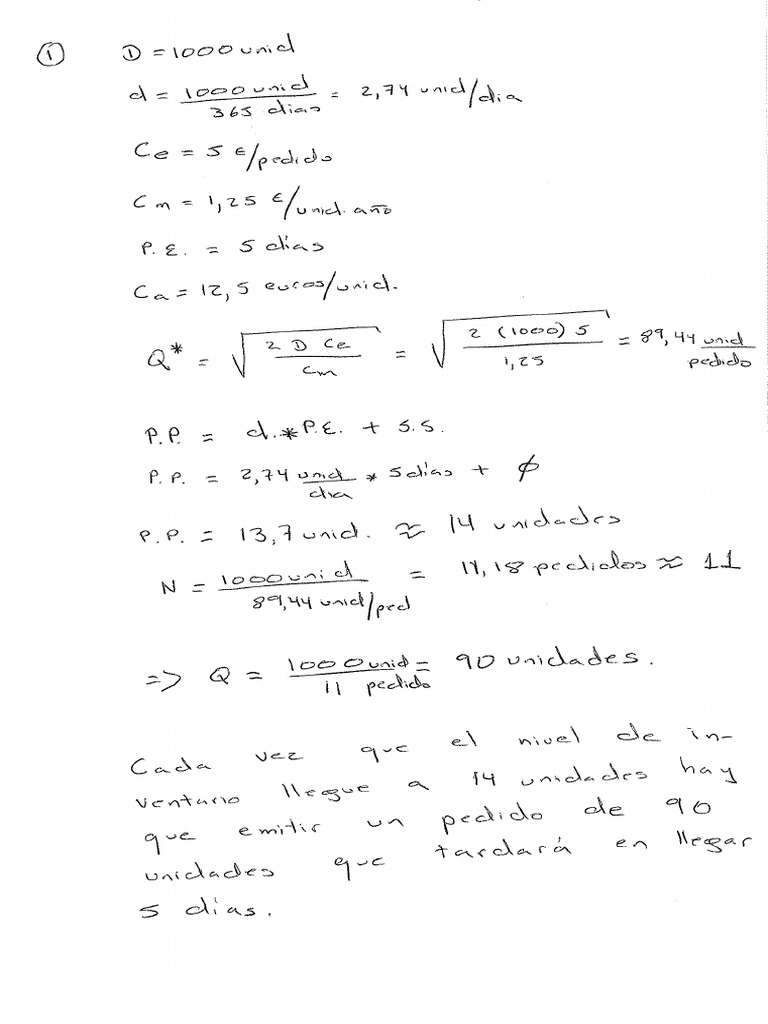 ① D = 1000 unid
d = 1000 unid / 365 dias = 2,74 unid/dia
Ce = 5 €/pedido
Cm = 1,25 €/unid. año
P.E. = 5 días
Ca = 12,5 euros/unid.
Q* = √(2 D Ce / Cm) = √(2 (1000) 5 / 1,25) = 89,44 unid/pedido
P.P. = d.*P.E. + S.S.
P.P. = 2,74 unid/dia * 5 días + ϕ
P.P. = 13,7 unid. ≈ 14 unidades
N = 1000 unid / 89,44 unid/ped = 11,18 pedidos ≈ 11
=> Q = 1000 unid / 11 pedido = 90 unidades.
Cada vez que el nivel de in-
ventario llegue a 14 unidades hay
que emitir un pedido de 90
unidades que tardará en llegar
5 días.